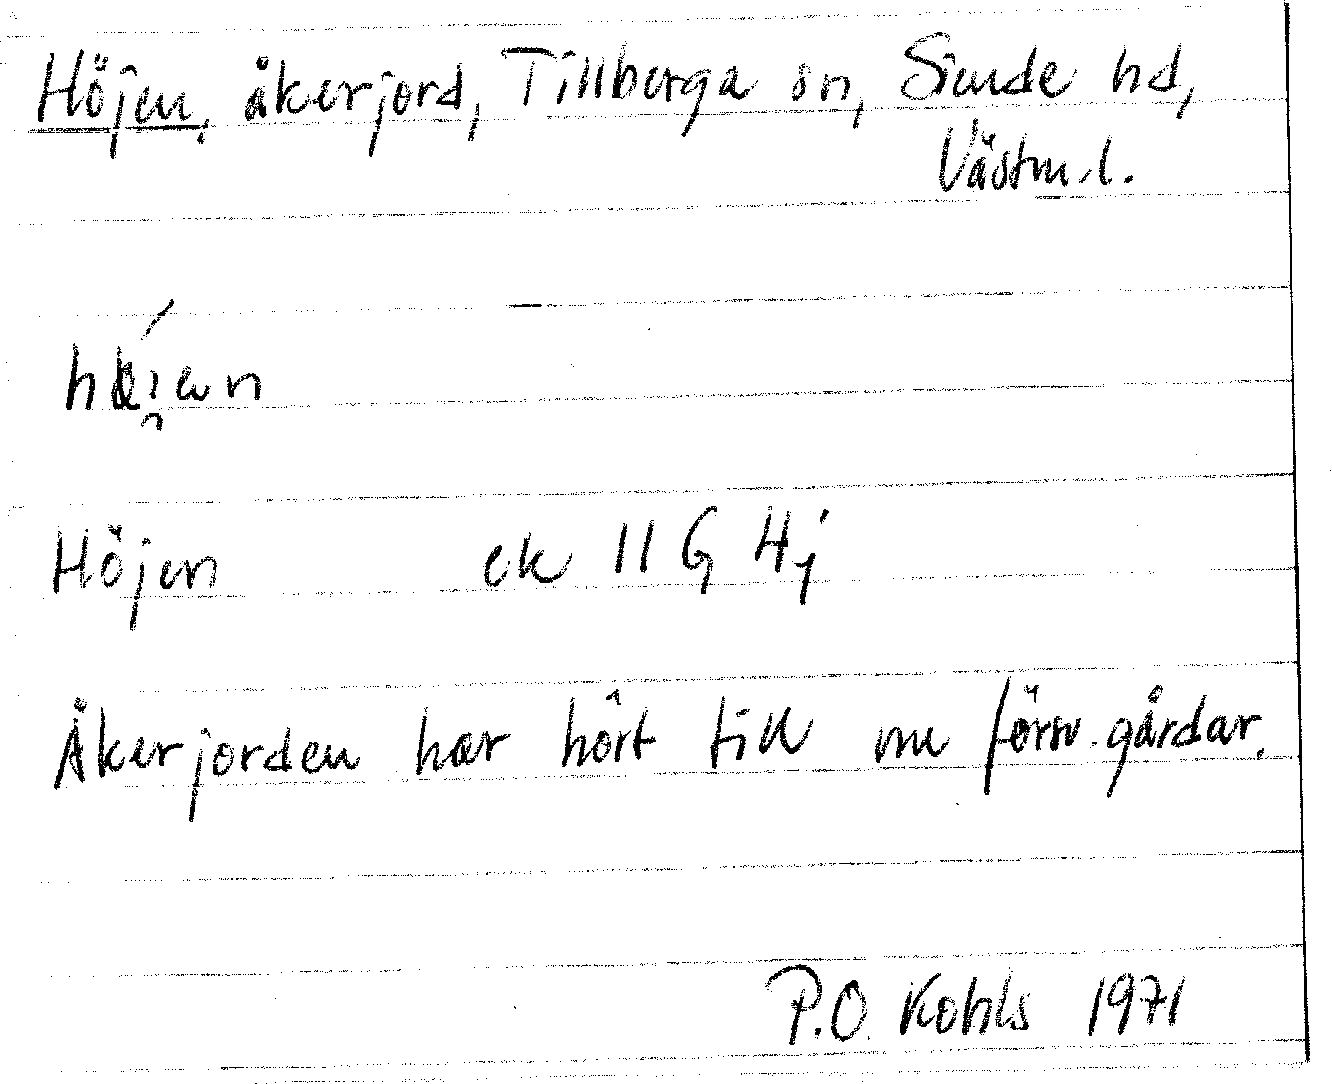 Höjen, åkerjord, Tillberga sn, Siende hd,
Västm.l.
Höjen ek 11 G 4j
Åkerjorden har hört till försv. gårdar.
P.O. Kohls 1971